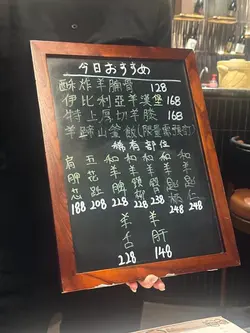 今日おすすめ
酥炸羊腩骨 128
伊比利亞羊漢堡 168
特上厚切羊膝
羊蹄山釜飯(限量需預訂)
稀有部位
肩胛芯 188
五花 208
和羊 228
和羊 208
和羊 238
和羊匙板 248
和羊匙仁 248
羊舌 228
羊肝 148